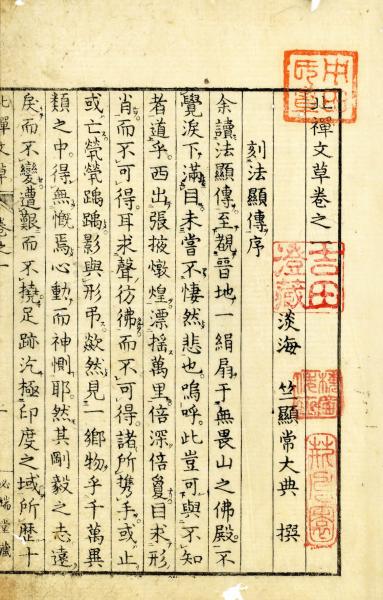 北禪文草卷之一
淡海 竺顯常大典 撰
刻法顯傳序
余讀法顯傳至觀晉地一絹扇于無畏山之佛殿不
覺淚下滿目未嘗不悽然悲也嗚呼此豈可與不知
者道乎西出張掖燉煌漂搖萬里倍深倍夐目求形
肖而不可得耳求聲彷彿而不可得諸所携手或止
或亡煢煢踽踽影與形弔欻然見一鄉物乎千萬異
類之中得無慨焉心動而神惻耶然其剛毅之志遠
戾而不變遭艱而不撓足跡汔極印度之域所歷十
北禪文草 卷之一 一